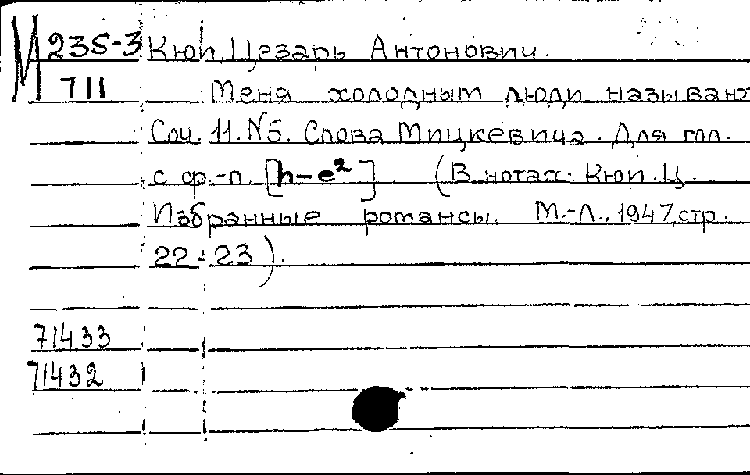 М 235-3 Кюи, Цезарь Антонович.
711 Меня холодным люди называют
Соч. 11. №5. Слова Мицкевича. Для гол.
с ф.-п. [h-e²] (В нотах: Кюи. Ц.
Избранные романсы. М.-Л., 1947, стр.
22-23).
71433
71432